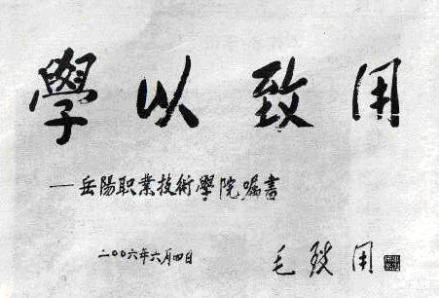 學以致用
一岳陽职業技術學院嘱書
二〇〇六年六月四日
毛致用